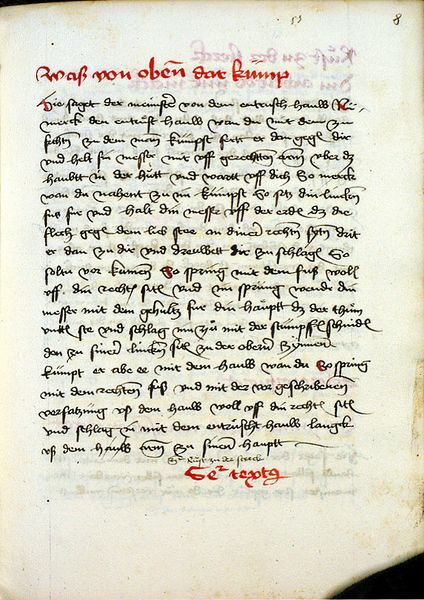 53 8
Waß von obeñ dar kümp
Hie saget der meinster von dem entrüsch hauw Nu
merck den entrüst hauw wan du mit dem zu
fechtn zu dem man kümpst stett er dan gegē dir
vnd helt sin messer mit vff gerechten arm vber dz
haubtt in der hutt vnd wartt vff dich So merck
wan du nahent zu im kümpst So setz din lincken
fuß für vnd halt din messer vff der erdē dz die
flach gegē dem lieb stee an diner rechten sytē drit
er dan zu dir vnd dreuwett dir zu schlagē So
soltu vor kumen So spring mit dem fuß woll
vff din rechtē sitē vnd im spring wende din
messer mit dem gehultz fur din häuptt dz der thum
vnttē ste vnd schlag im zu mit der stümpffē schnidē
den zu siner lincken sitē zu der obern zynnen
kümpt er abe ee mit dem hauw wan du So spring
mit dem rechten fuß vnd mit der vor geschribenen
verfatzung vß dem hauw woll vff din rechtē sitē
vnd schlag in mit dem entrüscht hauw langk
vß dem hauw arm zu sinem hauptt
Der text9